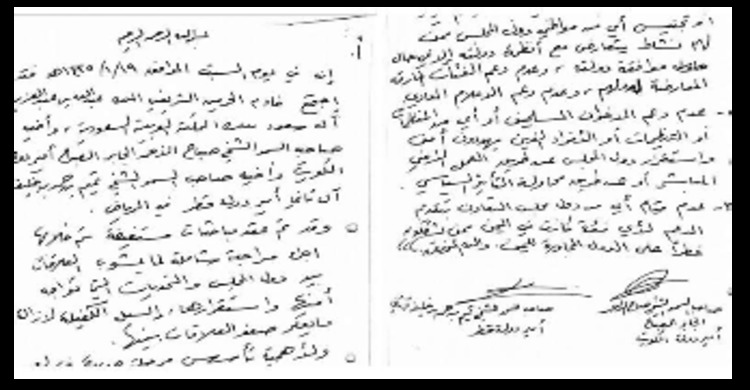 بسم الله الرحمن الرحيم
إنه في يوم السبت الموافق ١٤٣٥/١/١٩هـ فقد
اجتمع خادم الحرمين الشريفين الملك عبدالله بن عبدالعزيز
آل سعود ملك المملكة العربية السعودية، وأخيه
صاحب السمو الشيخ صباح الأحمد الجابر الصباح أمير دولة
الكويت وأخيه صاحب السمو الشيخ تميم بن حمد بن خليفة
آل ثاني أمير دولة قطر في الرياض.
وقد تم عقد مباحثات مستفيضة تم خلالها
اجراء مراجعة شاملة لما يشوب العلاقات
بين دول المجلس والتحديات التي تواجه
أمنها واستقرارها، والسبل الكفيلة لإزالة
ما يعكر صفو العلاقات بينها.
ولأهمية تأسيس مرحلة جديدة
أو تجنيس أي من مواطني دول المجلس ممن
لهم نشاط يتعارض مع أنظمة دولته إلا في حال
موافقة دولته، وعدم دعم الفئات المارقة
المعارضة لدولهم، وعدم دعم الإعلام المعادي
عدم دعم الاخوان المسلمين أو أي من المنظمات
أو التنظيمات أو الأفراد الذين يهددون أمن
واستقرار دول المجلس عن طريق العمل الأمني
المباشر أو عن طريق محاولة التأثير السياسي.
٣- عدم قيام أي من دول مجلس التعاون بتقديم
الدعم لأي فئة كانت في اليمن ممن يشكلون
خطراً على الدول المجاورة لليمن. والله الموفق،
صاحب السمو الشيخ صباح الأحمد
الجابر الصباح
أمير دولة الكويت
صاحب السمو الشيخ تميم بن حمد بن خليفة آل ثاني
أمير دولة قطر